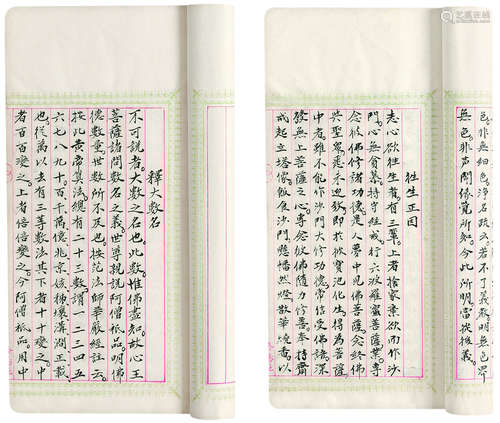 色。非無細色。淨名疏云。若不了義教。明無色界
無色。非聲聞緣覺所知。今此所明。當以後義。
往生正因
志心欲往生者。有三輩。上者捨家棄欲而作沙
門。心無貪慕。持守經戒。行六波羅蜜菩薩業。專
念彼佛。修諸功德。是人夢中見佛菩薩。命終佛
與聖眾悉來迎致。即於彼寶池化生。得為菩薩
中者。雖不能作沙門。大修功德。常信受佛語。深
發無上菩薩之心。專念彼佛。隨力修善。奉持齋
戒。起立塔像。飯食沙門。懸旛然燈。散華燒香。以
釋大数名
不可說者。大数之名也。此數惟佛盡知。故心王
菩薩請問數名之義。世尊親說阿僧祇品。明佛
德數量。世數所不及也。按範法師華嚴經註云。
按此黃帝算法。總有二十三數。謂一二三四五
六七八九十百千萬億兆京姟秭壤溝澗正載
也。從萬以去。有三等數法。其下者十十變之。中
者百百變之。上者倍倍變之。今阿僧祇品。用中